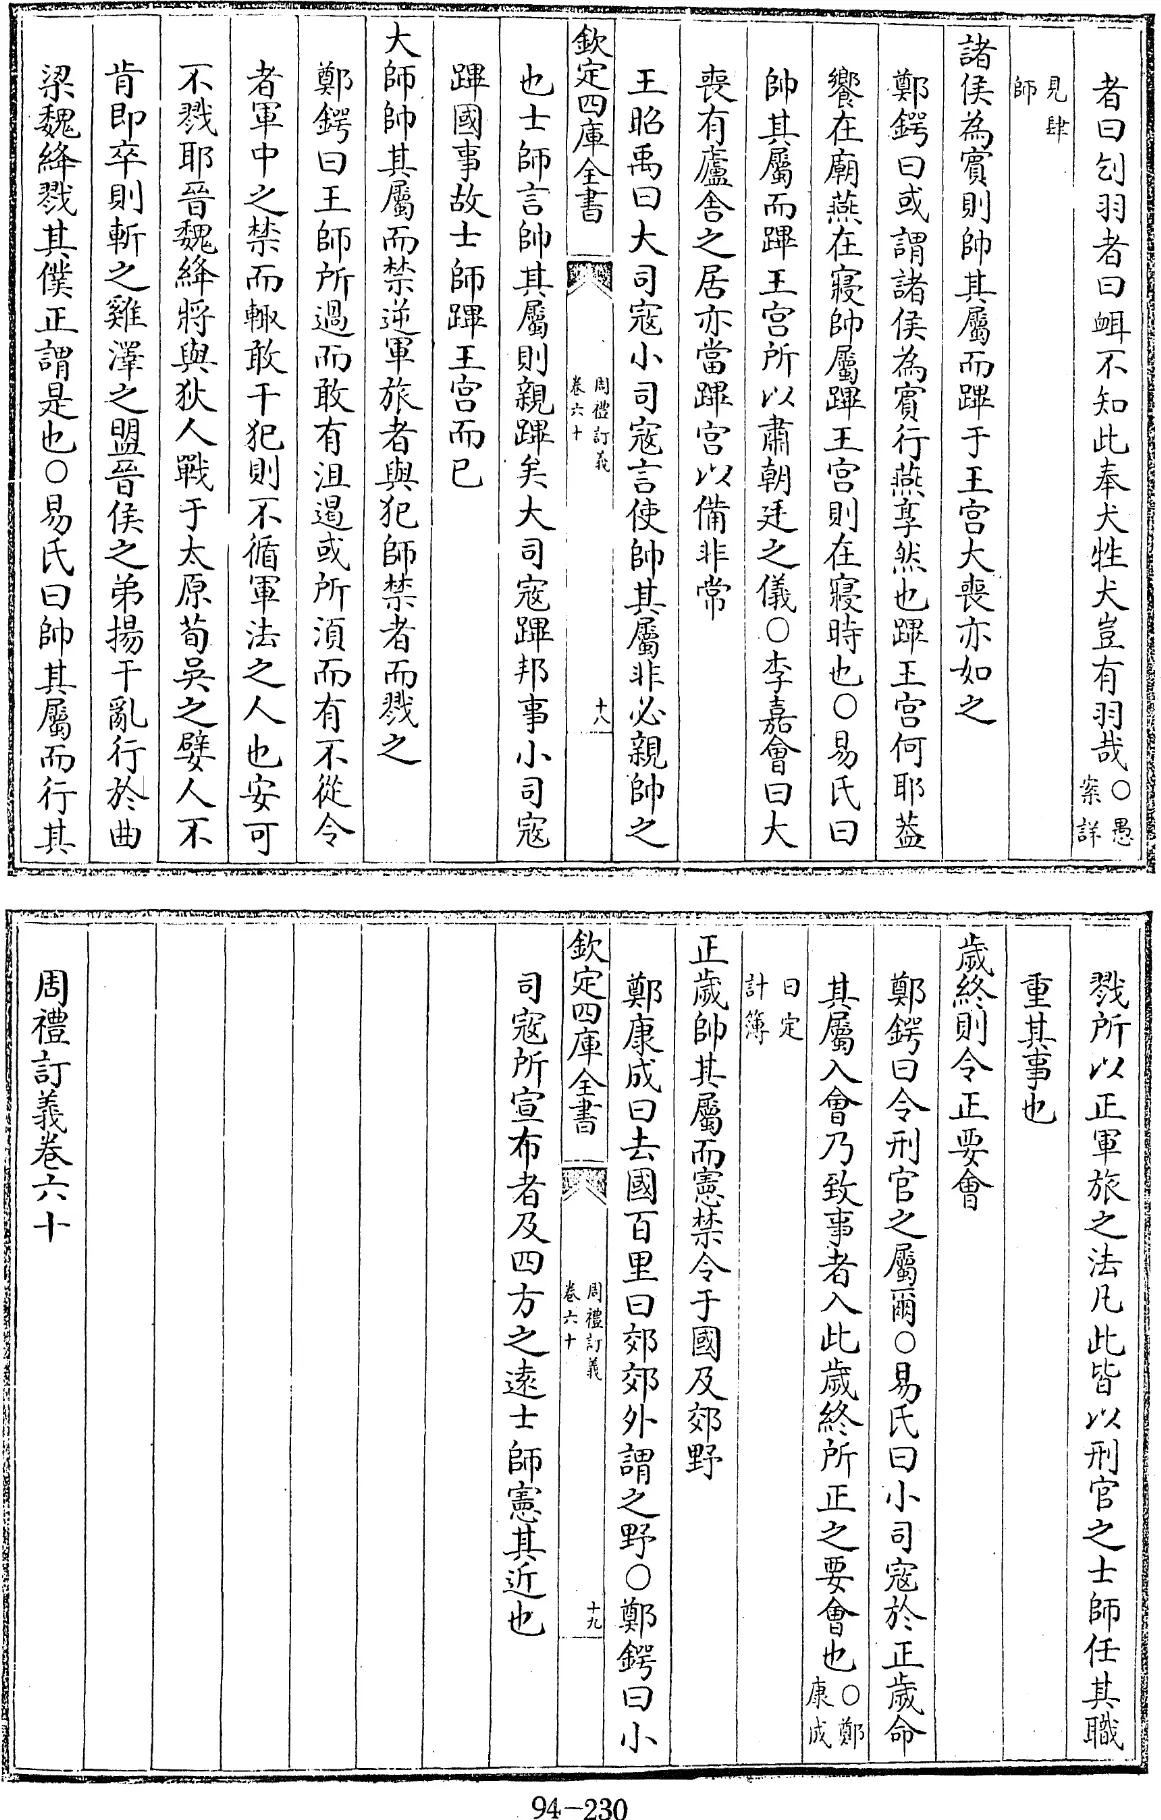 者曰刉羽者曰衈不知此奉犬牲犬豈有羽哉〇愚案詳
見肆師
諸侯為賓則帥其屬而蹕于王宫大喪亦如之
鄭鍔曰或謂諸侯為賓行燕享然也蹕王宫何耶葢
饗在廟燕在寢帥屬蹕王宫則在寢時也〇易氏曰
帥其屬而蹕王宫所以肅朝廷之儀〇李嘉會曰大
喪有廬舎之居亦當蹕宫以備非常
王昭禹曰大司寇小司寇言使帥其屬非必親帥之
欽定四庫全書
周禮訂義
卷六十
十八
也士師言帥其屬則親蹕矣大司寇蹕邦事小司寇
蹕國事故士師蹕王宫而已
大師帥其屬而禁逆軍旅者與犯師禁者而戮之
鄭鍔曰王師所過而敢有沮遏或所湏而有不從令
者軍中之禁而輙敢干犯則不循軍法之人也安可
不戮耶晉魏絳將與狄人戰于太原荀吳之嬖人不
肯即卒則斬之雞澤之盟晉侯之弟揚干亂行於曲
梁魏絳戮其僕正謂是也〇易氏曰帥其屬而行其
戮所以正軍旅之法凡此皆以刑官之士師任其職
重其事也
歲終則令正要會
鄭鍔曰令刑官之屬爾〇易氏曰小司寇於正歲命
其屬入會乃致事者入此歲終所正之要會也〇鄭康成
曰定計簿
正歲帥其屬而憲禁令于國及郊野
鄭康成曰去國百里曰郊郊外謂之野〇鄭鍔曰小
欽定四庫全書
周禮訂義
卷六十
十九
司寇所宣布者及四方之逺士師憲其近也
周禮訂義卷六十
94-230